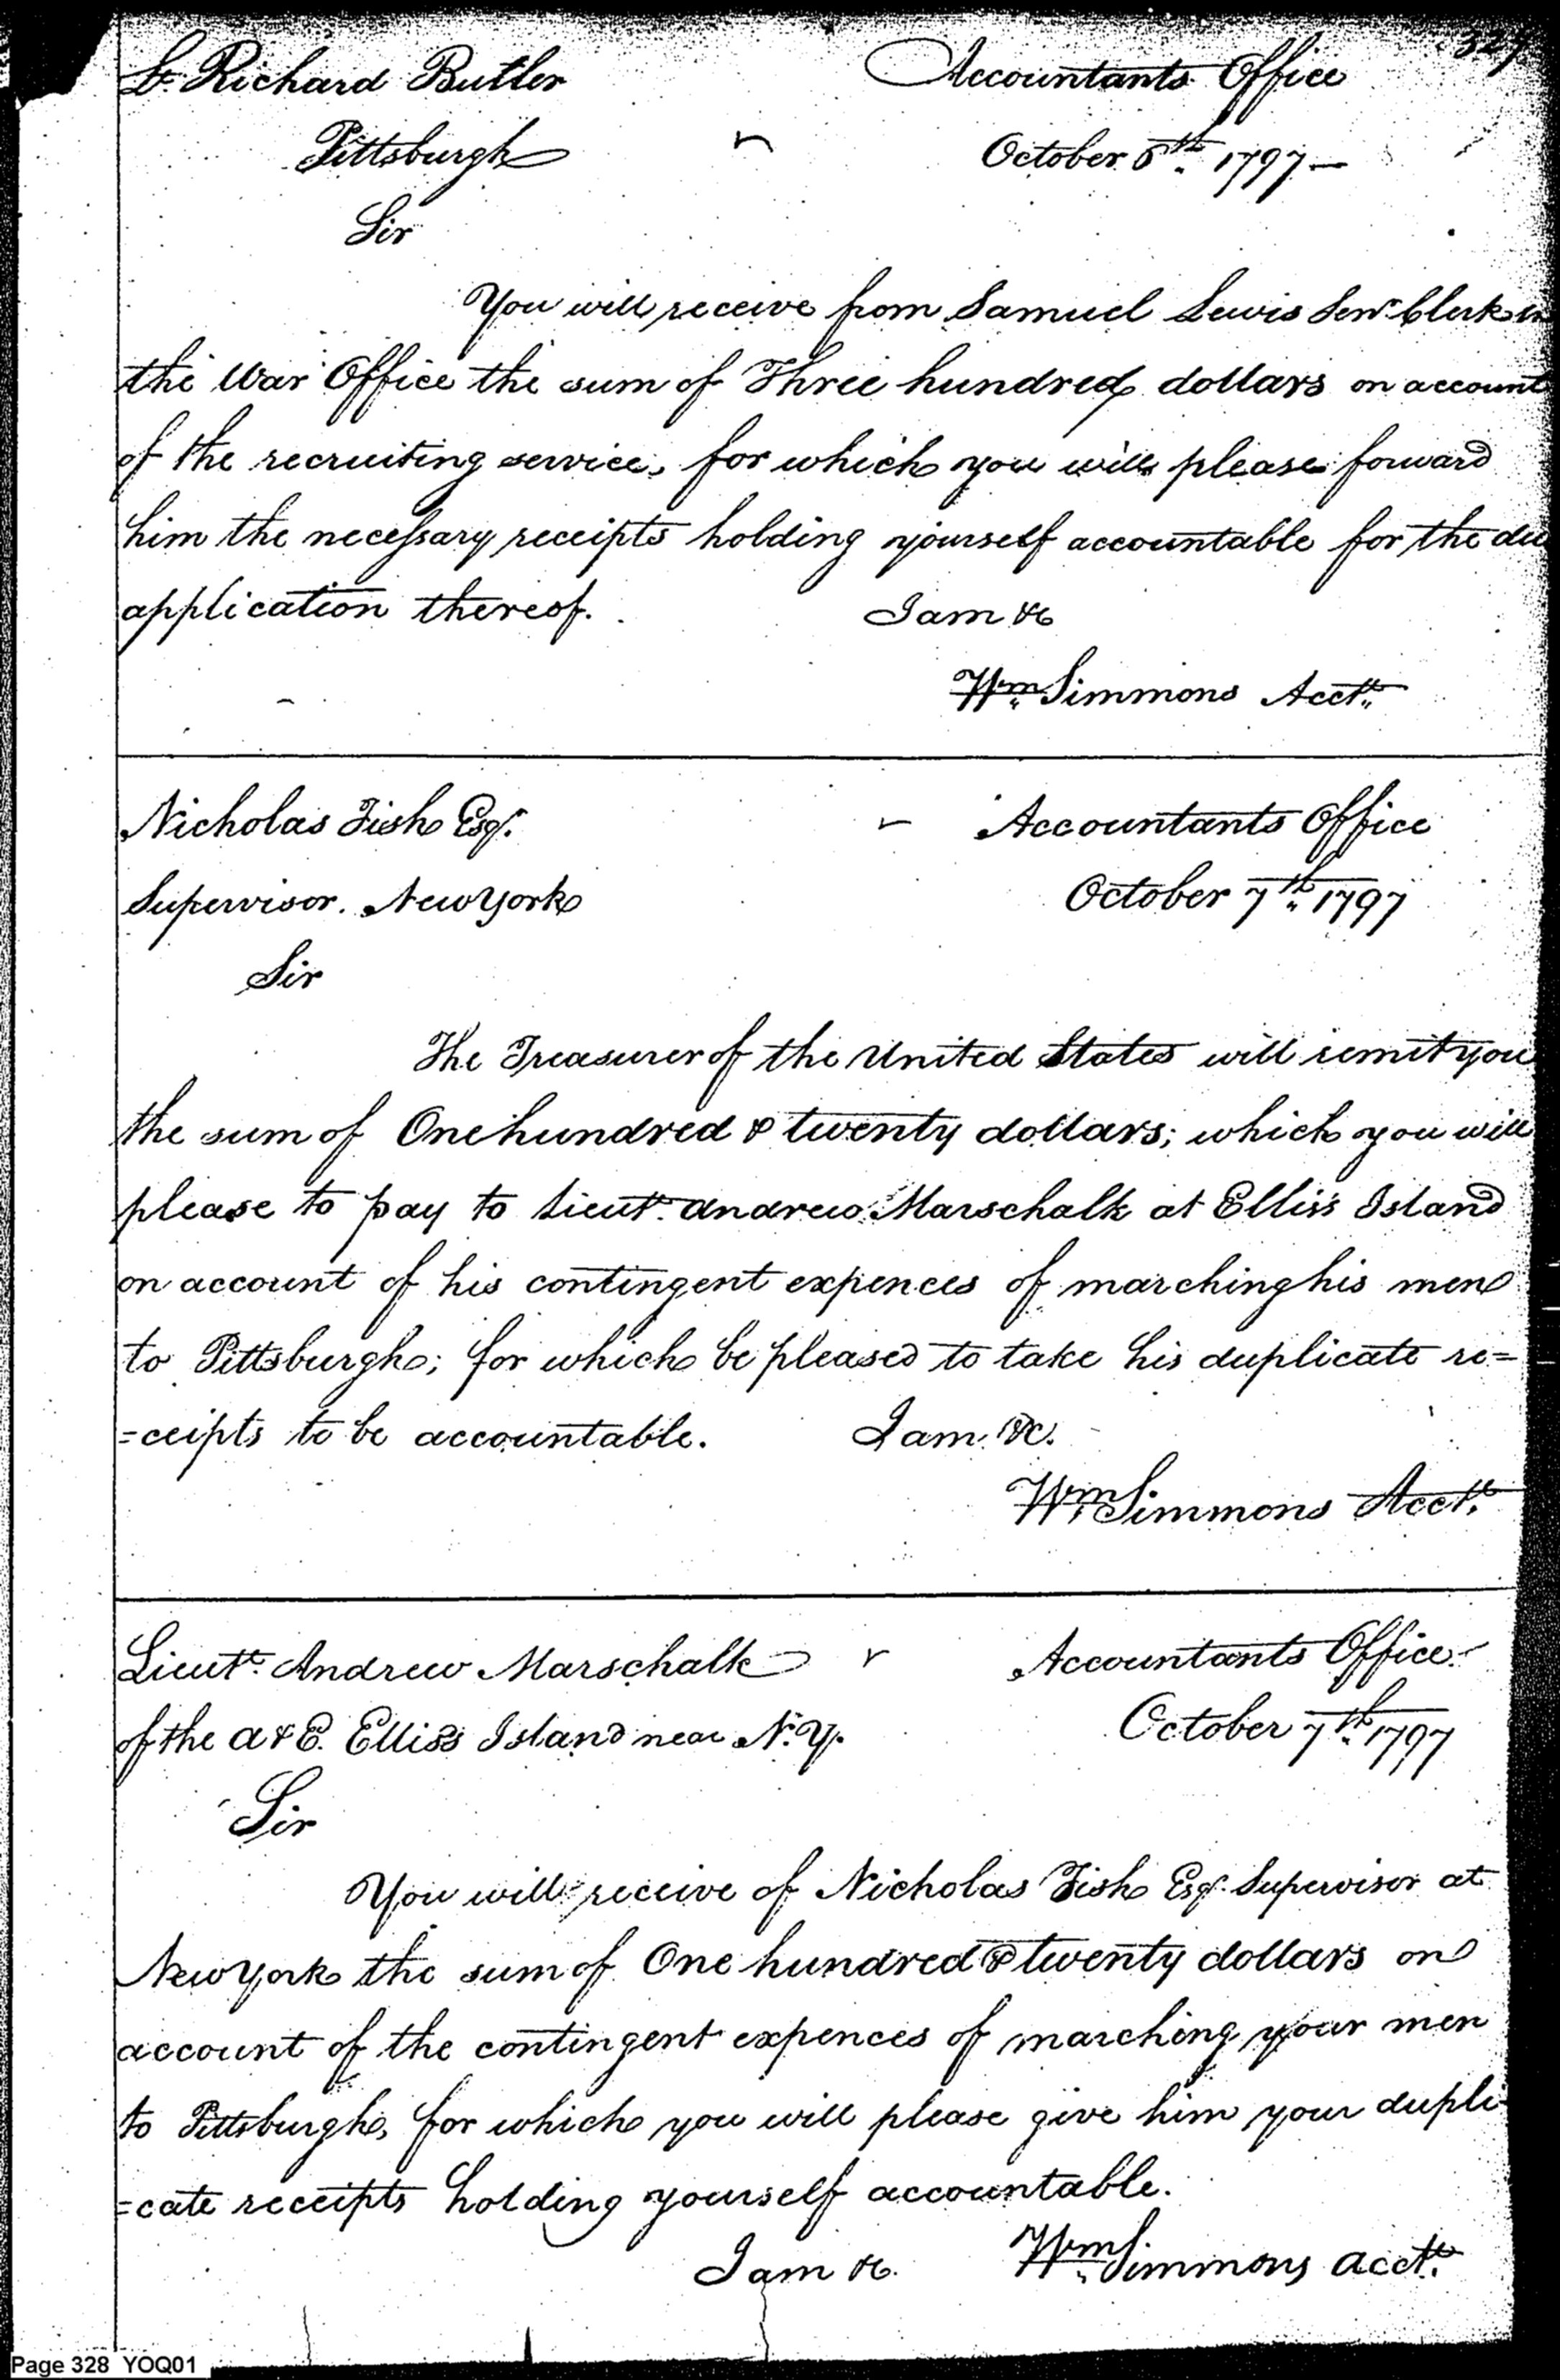 327
Lt. Richard Butler Accountants Office
Pittsburgh October 6th 1797—
Sir
You will receive from Samuel Lewis Senr Clerk in
the War Office the sum of Three hundred dollars on account
of the recruiting service, for which you will please forward
him the necessary receipts holding yourself accountable for the due
application thereof. I am &c
Wm Simmons Acctt.
Nicholas Fish Esqr. Accountants Office
Supervisor. New York October 7th 1797
Sir
The Treasurer of the United States will remit you
the sum of One hundred & twenty dollars; which you will
please to pay to Lieutt. Andrew Marschalk at Ellis's Island
on account of his contingent expences of marching his men
to Pittsburgh; for which be pleased to take his duplicate re=
=ceipts to be accountable. I am &c.
Wm Simmons Acctt.
Lieutt. Andrew Marschalk Accountants Office
of the A & E. Ellis's Island near N. Y. October 7th 1797
Sir
You will receive of Nicholas Fish Esqr. Supervisor at
New York the sum of One hundred & twenty dollars on
account of the contingent expences of marching your men
to Pittsburgh, for which you will please give him your dupli
=cate receipts holding yourself accountable.
I am &c. Wm Simmons acctt.
Page 328 YOQ01